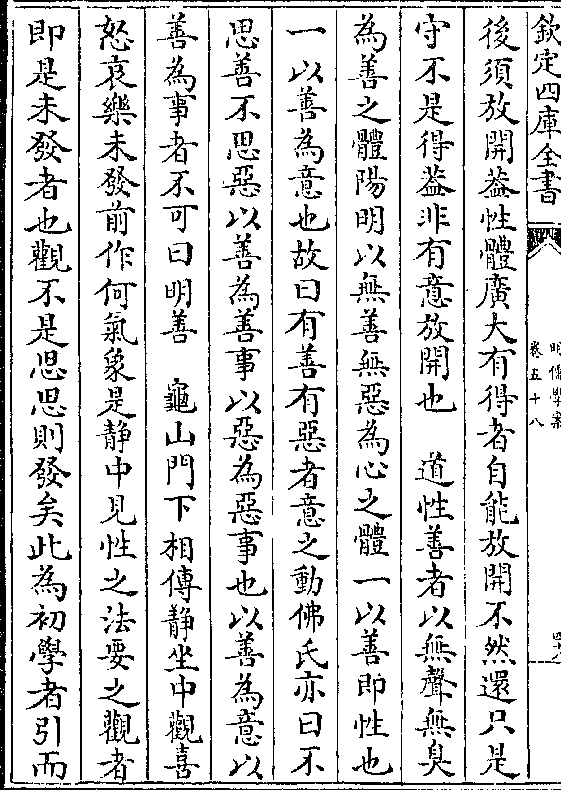 欽定四庫全書
明儒學案
卷五十八
後須放開葢性體廣大有得者自能放開不然還只是
守不是得葢非有意放開也　道性善者以無聲無臭
為善之體陽明以無善無惡為心之體一以善即性也
一以善為意也故曰有善有惡者意之動佛氏亦曰不
思善不思惡以善為善事以惡為惡事也以善為意以
善為事者不可曰明善　龜山門下相傳静坐中觀喜
怒哀樂未發前作何氣象是静中見性之法要之觀者
即是未發者也觀不是思思則發矣此為初學者引而